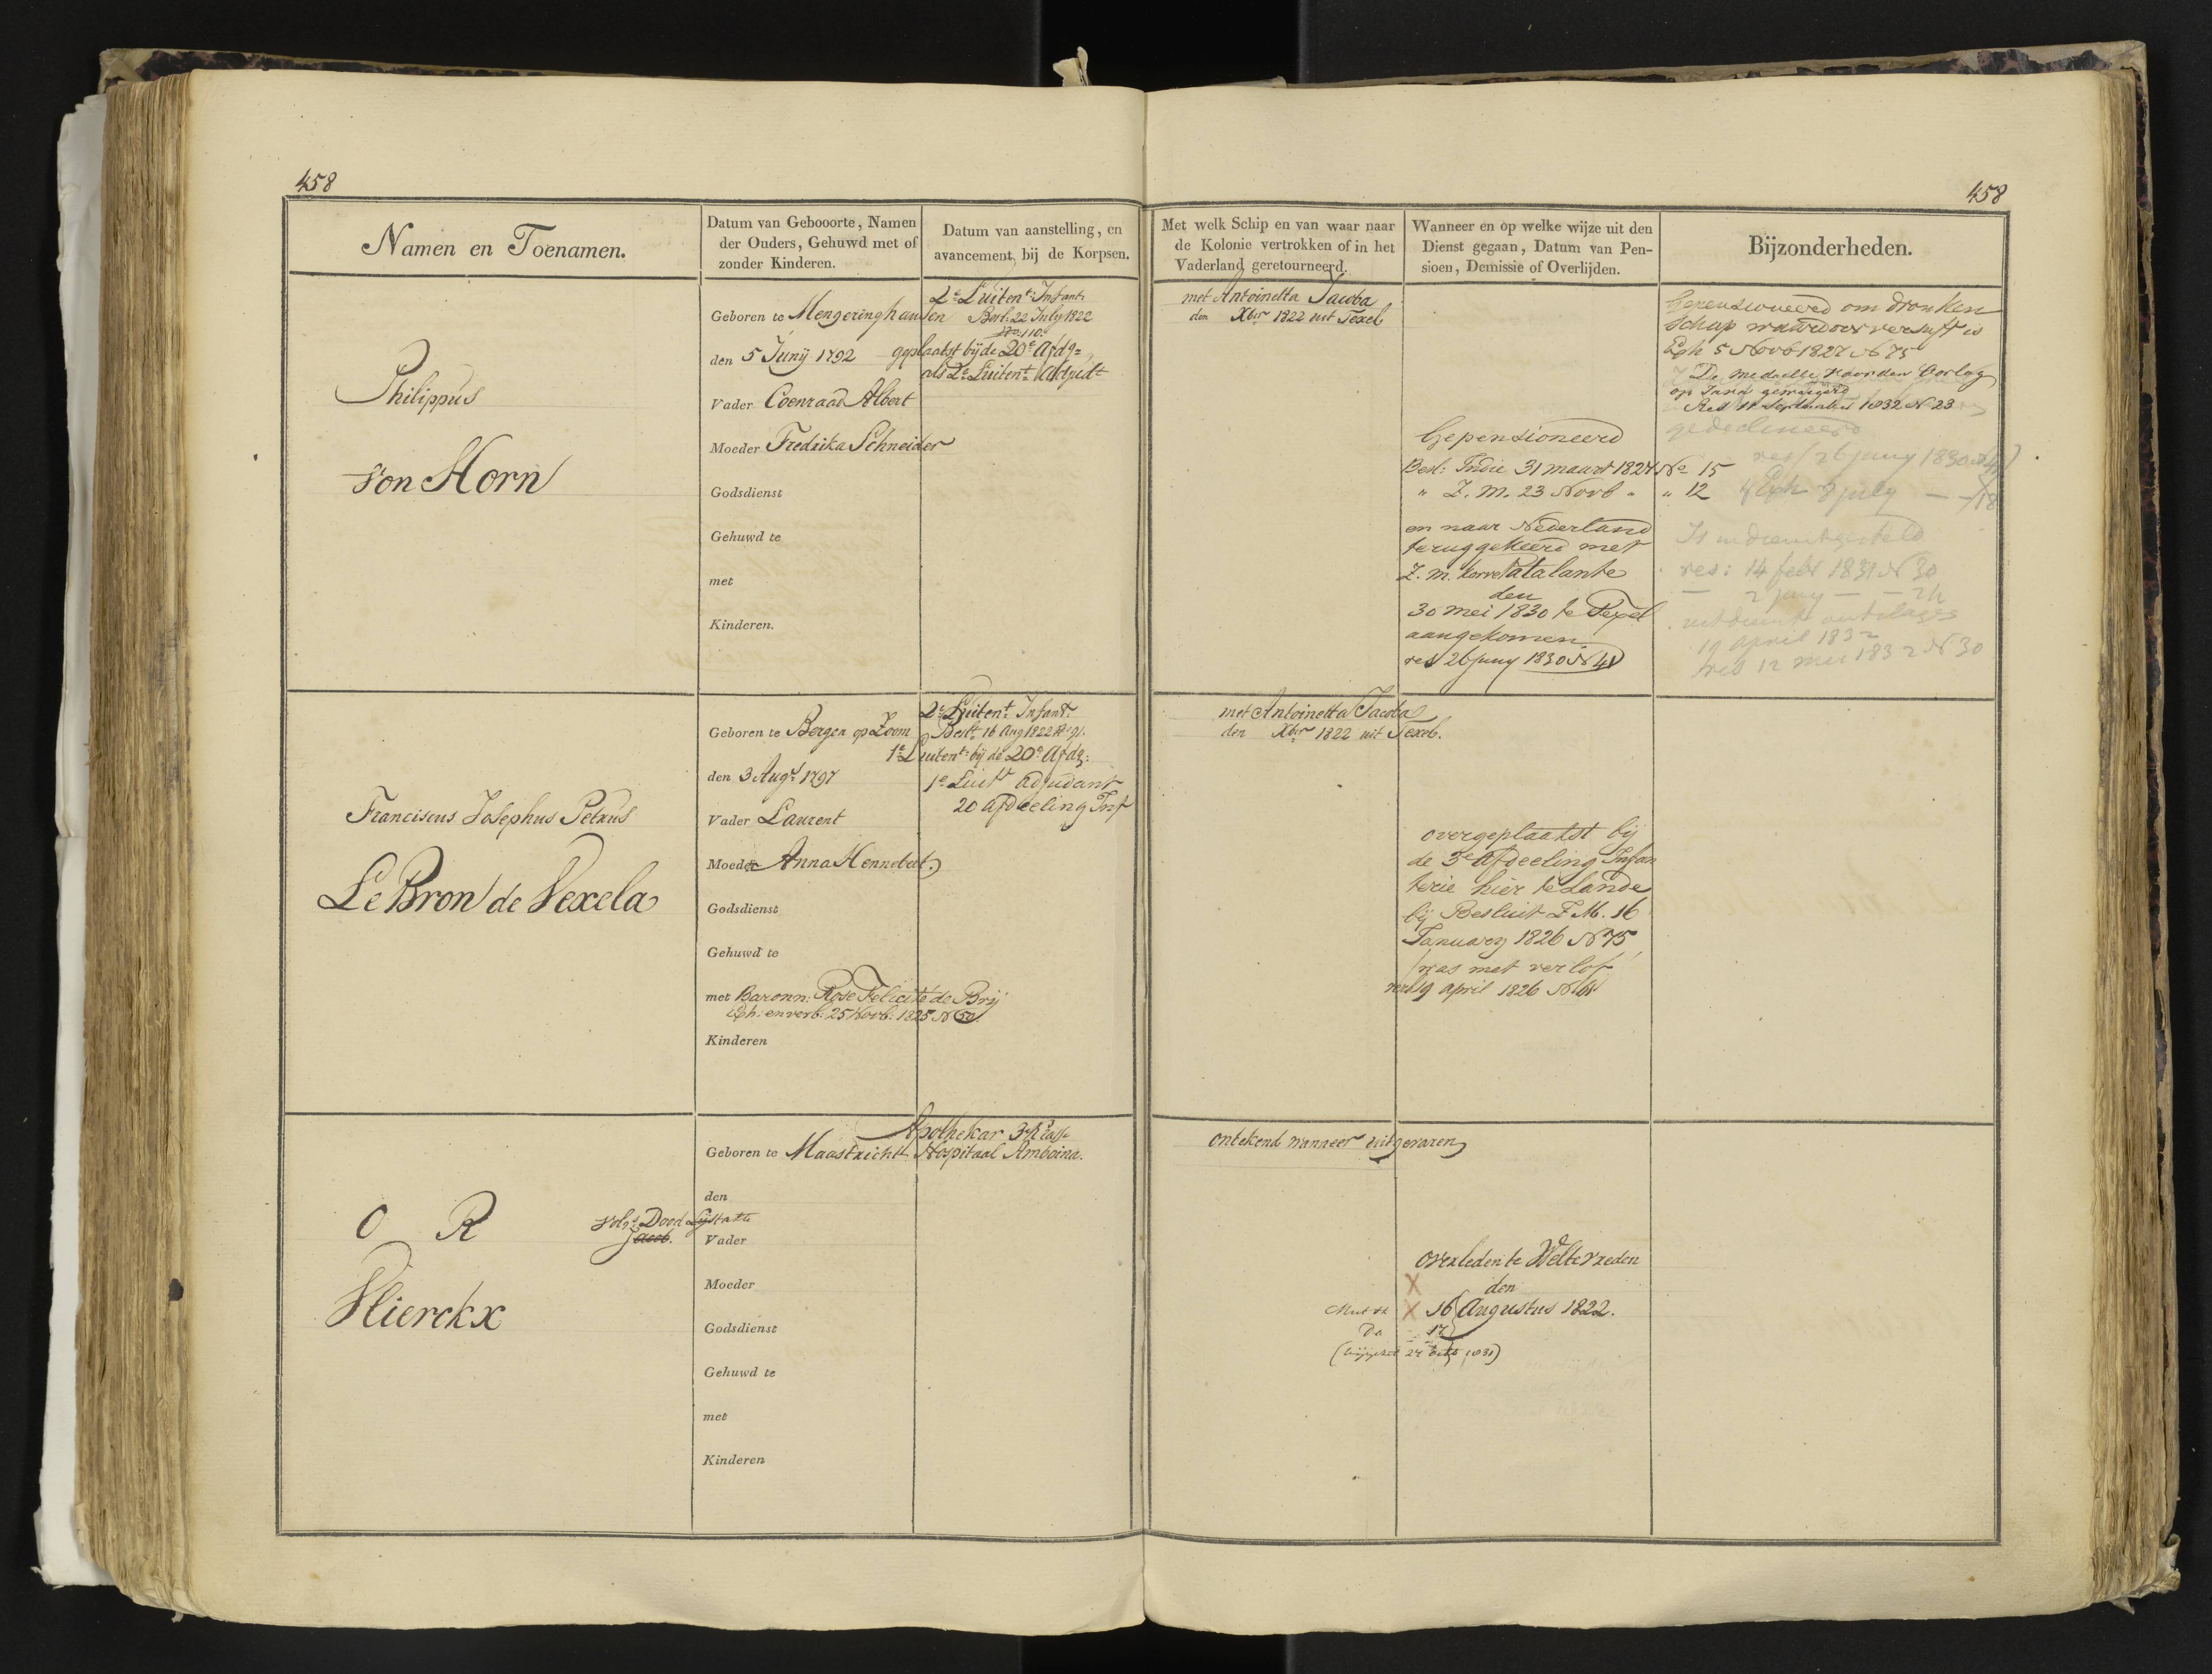 458
458
Namen en Toenamen.
Datum van Gebooorte, Namen
der Ouders, Gehuwd met of
zonder Kinderen.
Datum van aanstelling, en
avancement, bij de Korpsen.
Met welk Schip en van waar naar
de Kolonie vertrokken of in het
Vaderland geretourneerd.
Wanneer en op welke wijze uit den
Dienst gegaan, Datum van Pen-
sioen, Demissie of Overlijden.
Bijzonderheden.
Philippus
von Horn
Geboren te Mengeringhausen
den 5 Junij 1792
Vader Coenraad Albert
Moeder Fredrika Schneider
Godsdienst
Gehuwd te
met
Kinderen.
2e Luitent: Infant:
Besl: 22 July 1822
No 110
geplaatst bij de 20e Afdg=
als 2e Luitent: Adjudt
met Antoinetta Jacoba
den Xber 1822 uit Texel
Gepensioneerd
Besl: Indie 31 maart 1827 No 15
" Z. M. 23 Novb " " 12
en naar Nederland
teruggekeerd met
Z. M. korvet Atalante
den
30 mei 1830 te Texel
aangekomen
res 26 juny 1830 N 41
Gepensioneerd om dronken
schap waardoor versuft is
Eph 5 Novb 1827 N 75
De medaille voor den Oorlog
op Java geweigerd
Res 11 September 1832 N 23
gedeclineerd
res 26 juny 1830 N 41
Eph 8 july — — 18
Is in dienst gesteld
res: 14 feb 1831 N 30
— 2 juny — —
uit dienst ontslagen
19 april 1832
res 12 mei 1832 N 30
Franciscus Josephus Petrus
Le Bron de Vexela
Geboren te Bergen op Zoom
den 3 Augt 1797
Vader Laurent
Moeder Anna Hennebert
Godsdienst
Gehuwd te
met Baronn: Rose Felicité de Brij
Eph: en verb: 25 Novb: 1825 N 50
Kinderen
2e Luitent Infant:
Beslt 16 Aug 1822 No 91.
1e Luitent: bij de 20e Afdg:
1e Luit adjudant
20 afdeeling Inf
met Antoinetta Jacoba
den Xber 1822 uit Texel.
overgeplaatst bij
de 3e afdeeling Infan
terie hier te Lande
bij Besluit Z. M. 16
January 1826 N 75
was met verlof
res 19 april 1826
O R
volgs Dood Lijst
Jacob.
Hierckx
Geboren te Maastricht
den
Vader
Moeder
Godsdienst
Gehuwd te
met
Kinderen
Apothekar 3e Klasse
Hospitaal Amboina.
onbekend wanneer uitgevaren
overleden te Weltevreden
den
X
X 16 Augustus 1822.
Do 17